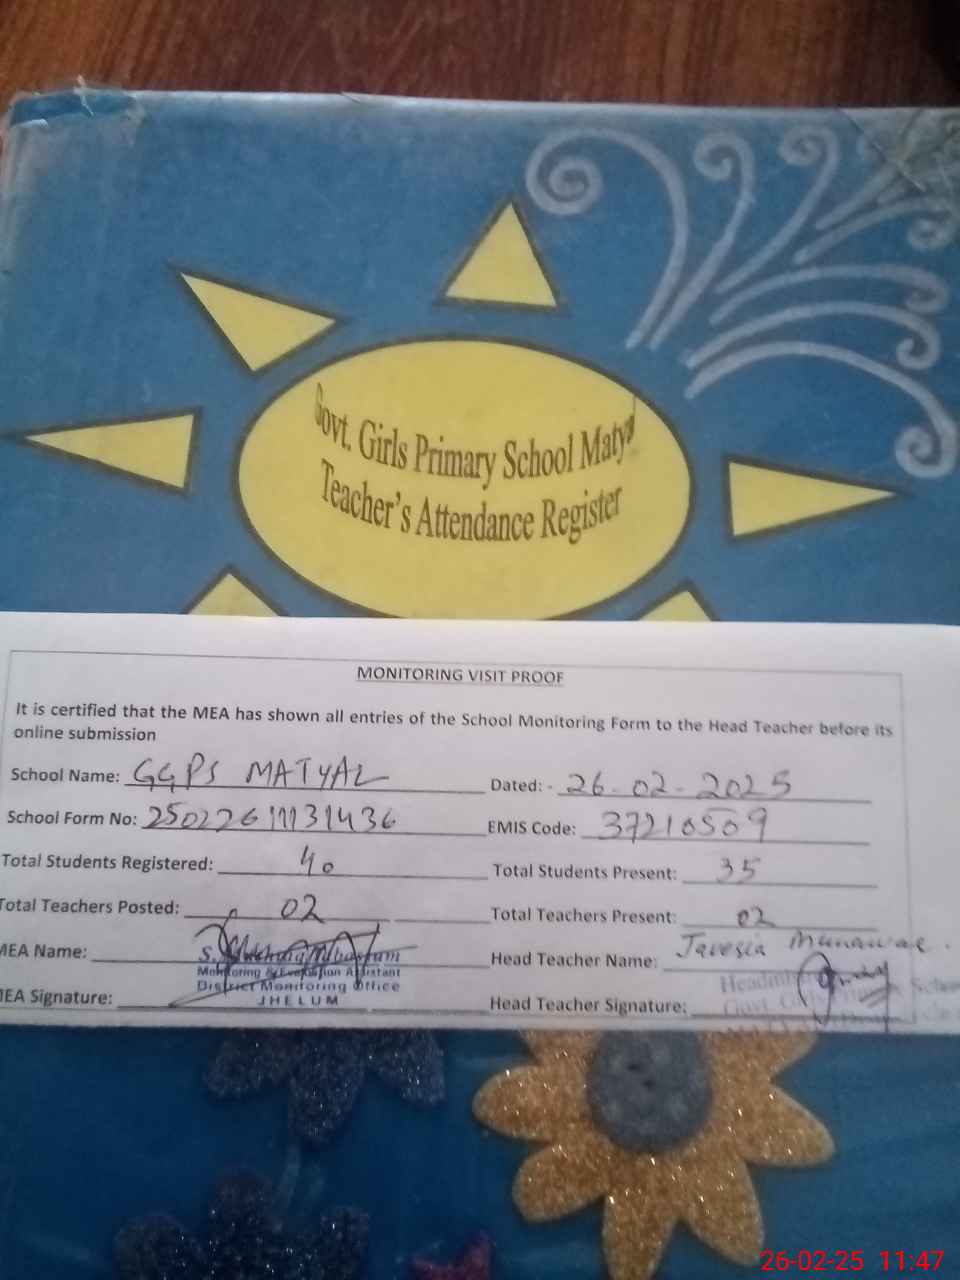 Govt. Girls Primary School Matyal
Teacher's Attendance Register
MONITORING VISIT PROOF
It is certified that the MEA has shown all entries of the School Monitoring Form to the Head Teacher before its
online submission
School Name: GGPS MATYAL Dated: - 26-02-2025
School Form No: EMIS Code: 37210509
Total Students Registered: 40 Total Students Present: 35
Total Teachers Posted: 02 Total Teachers Present: 02
MEA Name: S.
Monitoring & Evaluation Assistant
District Monitoring Office
JHELUM
Head Teacher Name:
MEA Signature: Head Teacher Signature:
Govt. Girls Primary School
26-02-25 11:47